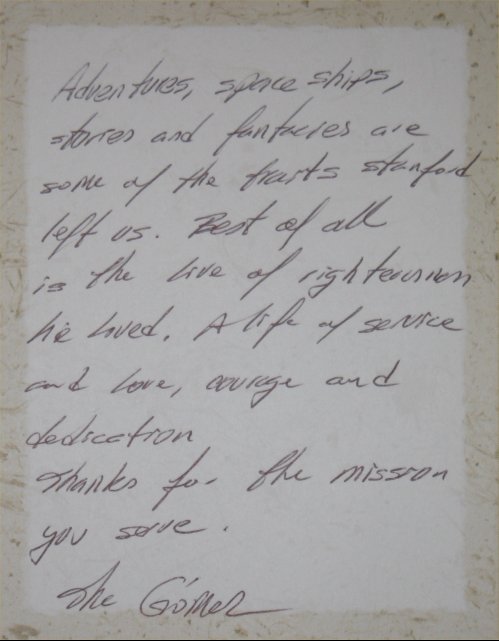 Adventures, space ships,
stories and fantacies are
some of the traits stanford
left us. Best of all
is the live of righteousness
he loved. A life of service
and love, courage and
dedication
Thanks for the mission
you serve.
The Gómez